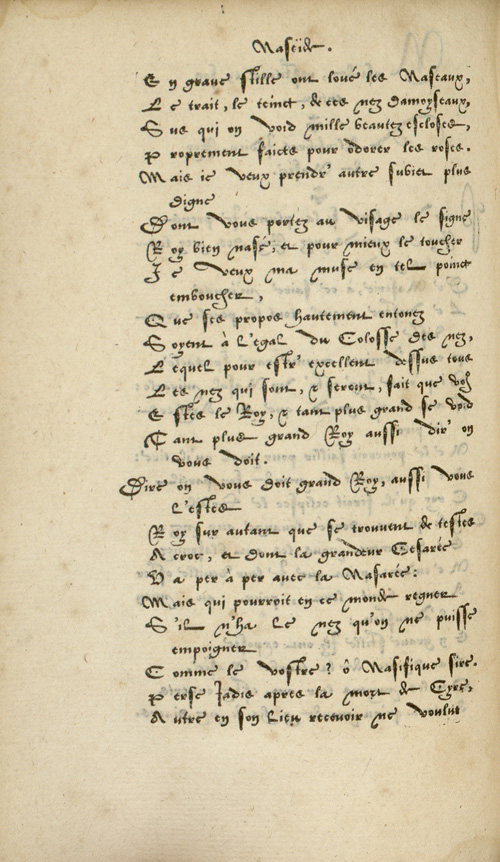 Naseïde.
En grave stille ont loué les Naseaux,
Le trait, le teinct, de ces nez damoyseaux,
Sus qui on void mille beautez escloses,
Proprement faicts pour odorer les roses.
Mais ie veux prendr' autre subiet plus
digne
Dont vous portez au visage le signe
Roy bien nasé, et pour mieux le toucher
Ie veux ma muse en tel poinct
emboucher,
Que ses propos hautement entonez
Soyent à l'egal du Colosse des nez,
Lequel pour estr' excellent dessus tous
Les nez qui sont, & seront, fait que vous
Estes le Roy, & tant plus grand se void
Tant plus grand Roy aussi dir' on
vous doit.
Dire on vous doit grand Roy, aussi vous
l'estes
Roy sur autant que se trouvent de testes
A croc, et dont la grandeur Cesarée
Va per à per avec la Nasarée:
Mais qui pourroit en ce monde regner
S'il n'ha le nez qu'on ne puisse
empoigner
Comme le vostre? ô Nasifique sire.
Perse Jadis apres la mort de Cyre,
Autre en son lieu recevoir ne voulut